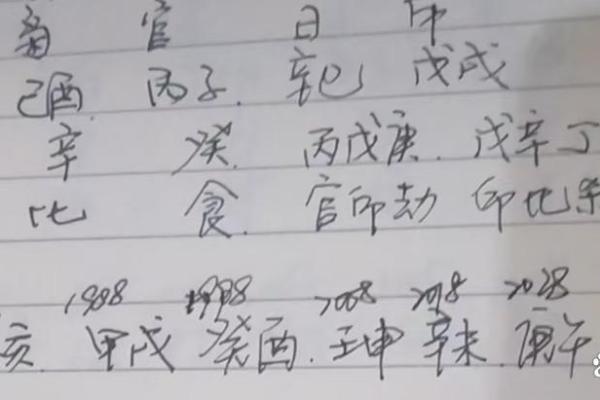 官 日
己酉. 丙子. 辛巳 戊戌
辛 癸. 丙戊庚. 戊辛丁
比 食. 官印劫 印比杀
1988 1998 2008 2018 2028
亥. 甲戌 癸酉. 壬申 辛未. 庚午